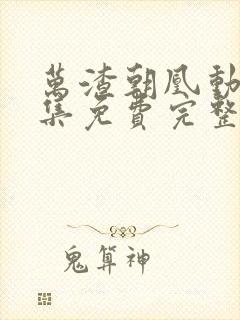 萬渣朝凰動
集免費完整
鬼算神